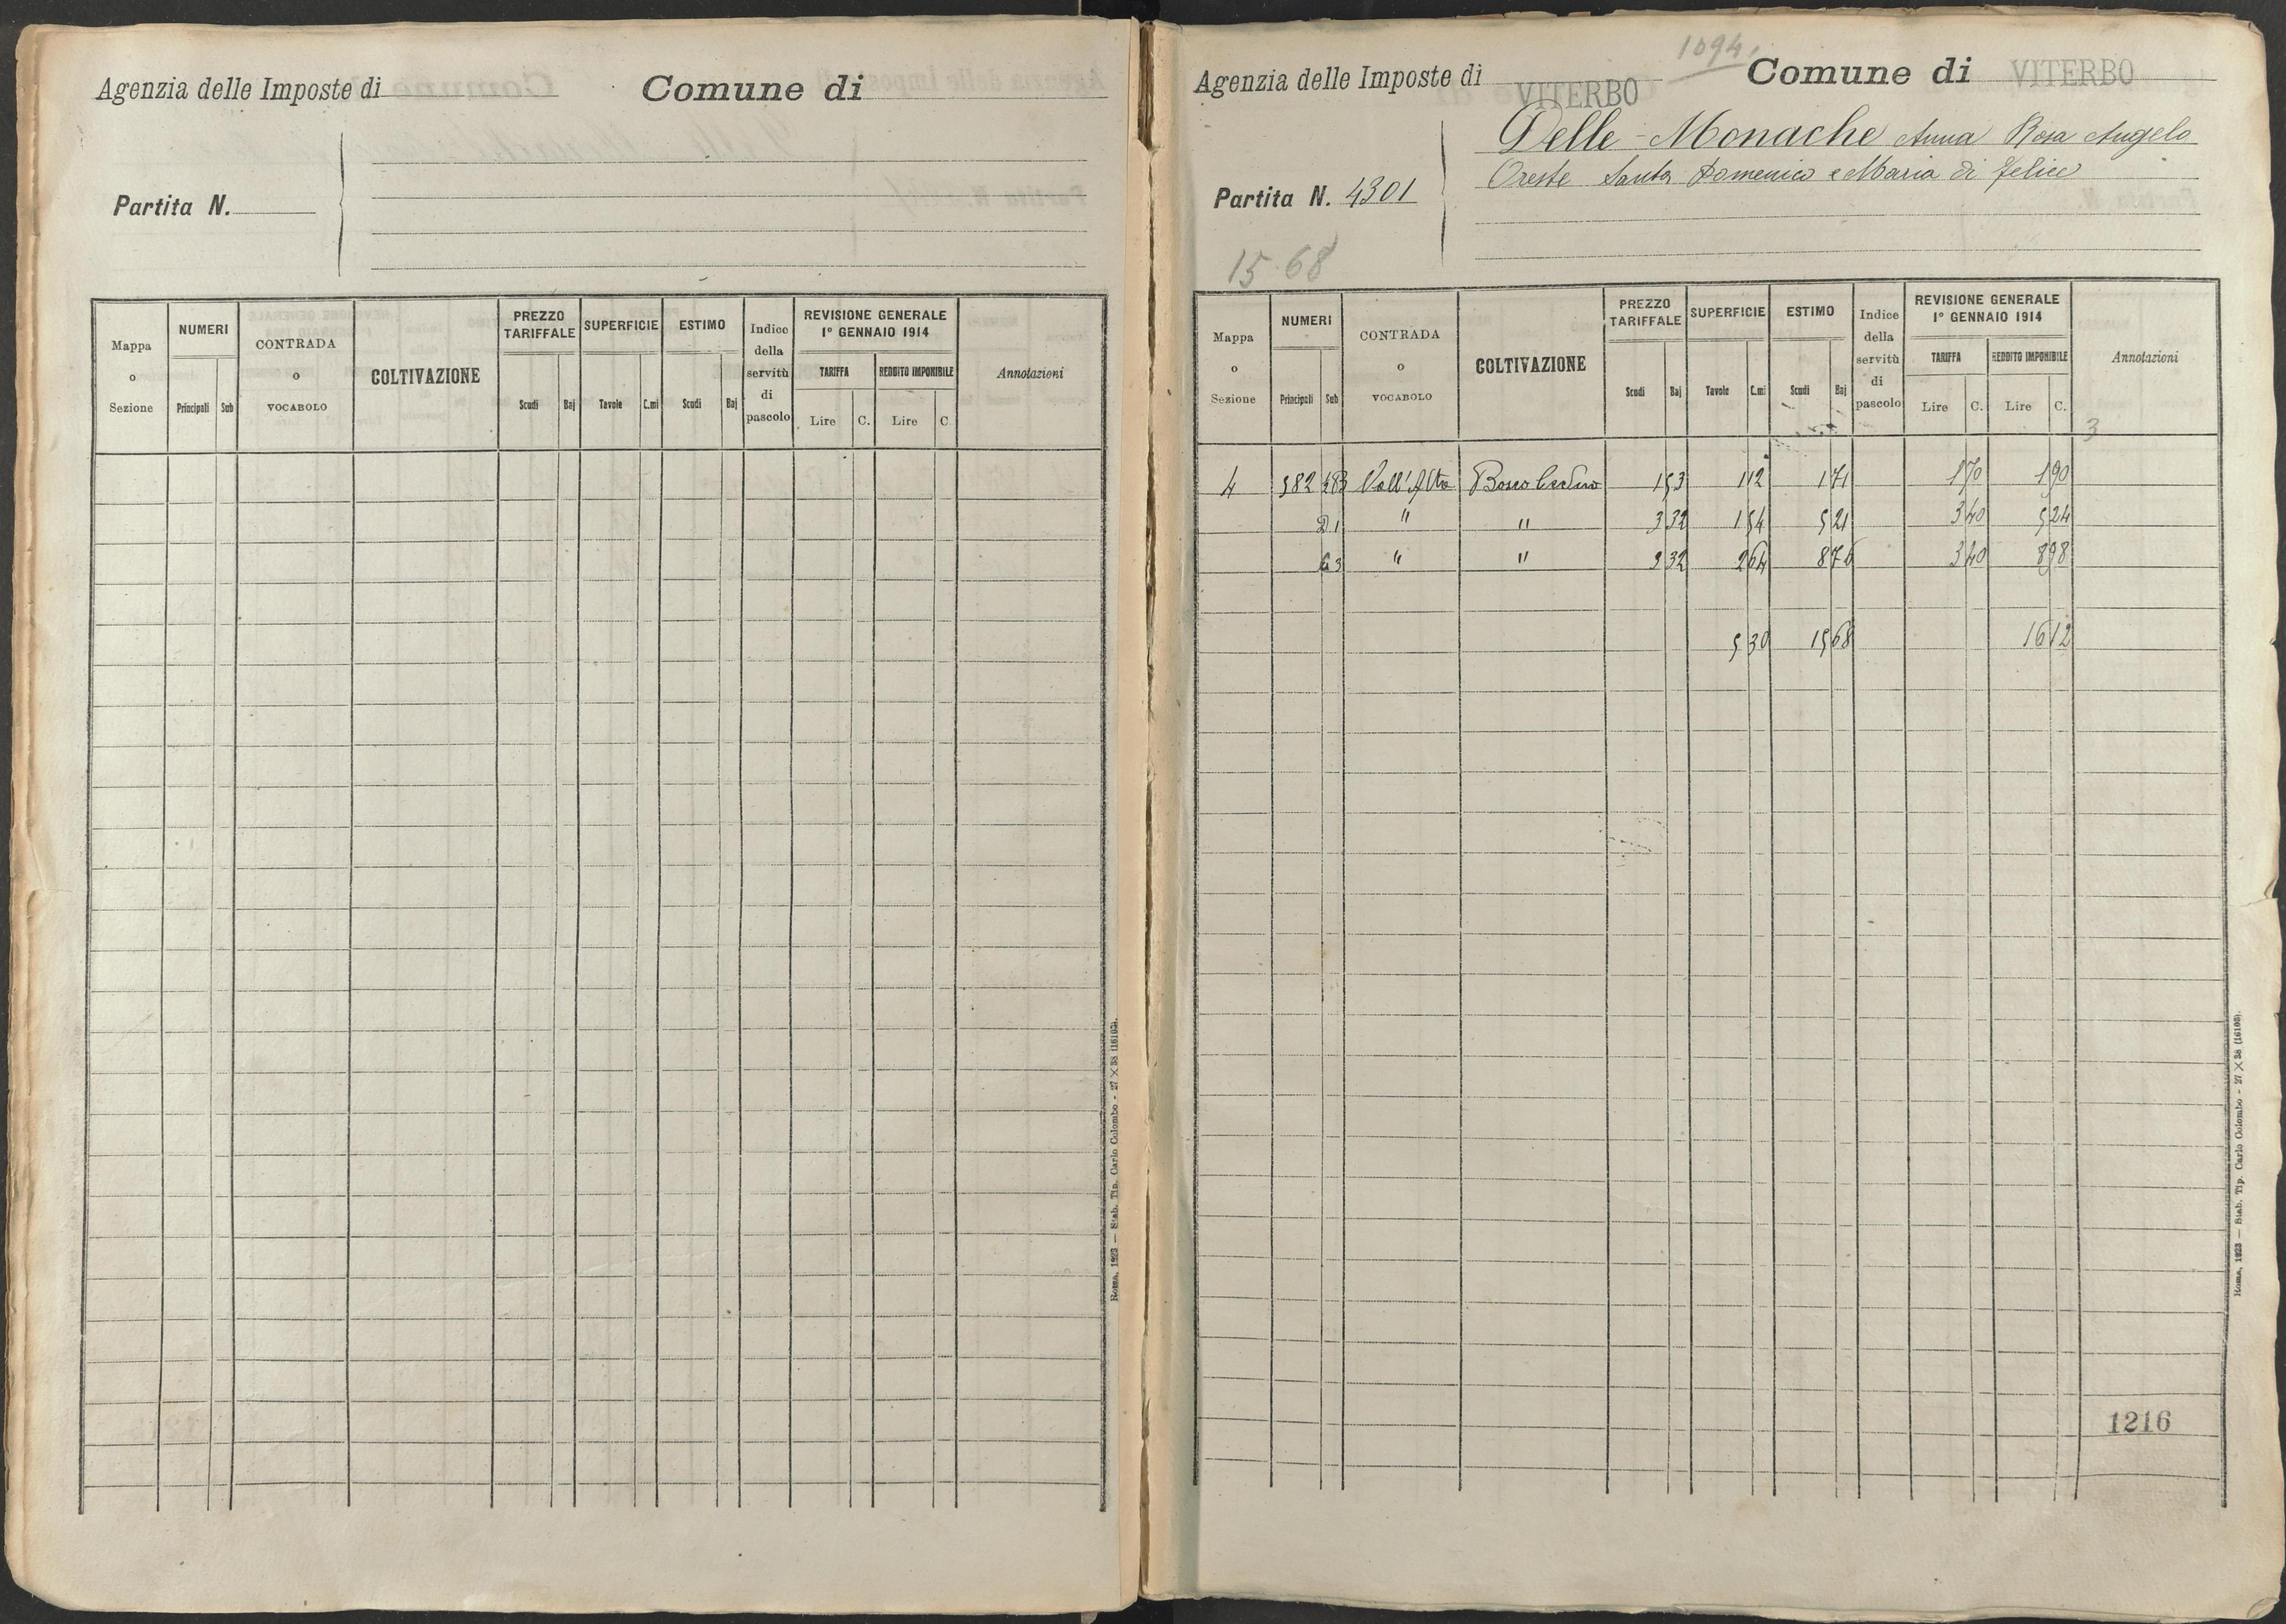 Agenzia delle Imposte di
Comune di
Partita N.
Mappa o Sezione
NUMERI
Principali Sub
CONTRADA o VOCABOLO
COLTIVAZIONE
PREZZO TARIFFALE
Scudi Baj
SUPERFICIE
Tavole C.mi
ESTIMO
Scudi Baj
Indice della servitù di pascolo
REVISIONE GENERALE
1° GENNAIO 1914
TARIFFA REDDITO IMPONIBILE
Lire C. Lire C
Annotazioni
Roma, 1923 — Stab. Tip. Carlo Colombo - 27 X 38 (16103).
1094
Agenzia delle Imposte di VITERBO Comune di VITERBO
Delle Monache Anna Rosa Angelo
Oreste Santa Domenico e Maria di Felice
Partita N. 4301
15 68
Mappa o Sezione
NUMERI
Principali Sub
CONTRADA o VOCABOLO
COLTIVAZIONE
PREZZO TARIFFALE
Scudi Baj
SUPERFICIE
Tavole C.mi
ESTIMO
Scudi Baj
Indice della servitù di pascolo
REVISIONE GENERALE
1° GENNAIO 1914
TARIFFA REDDITO IMPONIBILE
Lire C. Lire C.
Annotazioni
3
4 582 Vall'Alta Bosco Ceduo 1 53 1 12 1 71 1 70 1 90
" " 3 32 1 54 5 21 3 40 5 24
" " 3 32 2 64 8 76 3 40 8 98
5 30 15 68 16 12
1216
Roma, 1923 — Stab. Tip. Carlo Colombo - 27 X 38 (16103).